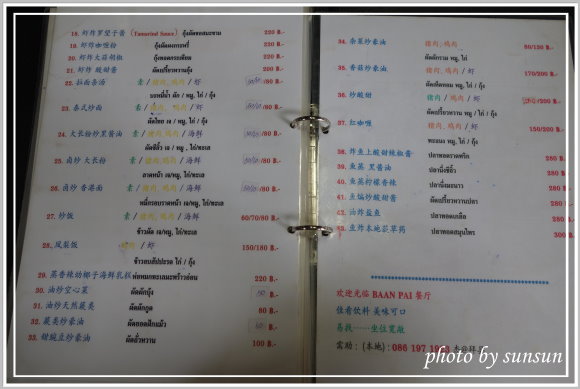 18. 虾炸罗望子酱 (Tamarind Sauce) กุ้งผัดซอสมะขาม 220 B.-
19. 虾炸咖喱粉 กุ้งผัดผงกะหรี่ 220 B.-
20. 虾炸大蒜胡椒 กุ้งทอดกระเทียม 220 B.-
21. 虾炸 酸甜酱 ผัดเปรี้ยวหวานกุ้ง 200 B.-
22. 拉面素汤 素 / 猪肉, 鸡肉 / 虾 /80 B.-
บะหมี่น้ำ ผัก / หมู, ไก่ / กุ้ง
23. 泰式炒面 素 / 猪肉, 鸡肉 / 虾 /80 B.-
ผัดไทย เจ / หมู, ไก่ / กุ้ง
24. 大长粉炒里酱油 素 / 猪肉, 鸡肉 / 海鲜 /80 B.-
ผัดซีอิ้ว เจ / หมู, ไก่/ทะเล
25. 卤炒大长粉 素 / 猪肉, 鸡肉 / 海鲜 /80 B.-
ลาดหน้า เจ/หมู, ไก่/ทะเล
26. 卤炒香港面 素 / 猪肉, 鸡肉 / 海鲜 /80 B.-
หมี่กรอบราดหน้า เจ/หมู, ไก่/ทะเล
27. 炒饭 素 / 猪肉, 鸡肉 / 海鲜 60/70/80 B.-
ข้าวผัด เจ/หมู, ไก่/ทะเล
28. 凤梨饭 鸡肉 / 虾 150/180 B.-
ข้าวอบสัปปะรด ไก่ / กุ้ง
29. 蒸香辣幼椰子海鲜乳糕 ห่อหมกทะเลมะพร้าวอ่อน 220 B.-
30. 油炒空心菜 ผัดผักบุ้ง B.-
31. 油炒天然蕨类 ผัดผักกูด 80 B.-
32. 蕨类炒豪油 ผัดยอดฟักแม้ว B.-
33. 甜豌豆炒豪油 ผัดถั่วหวาน 100 B.-
34. 杂菜炒豪油 猪肉, 鸡肉 80/150 B.-
ผัดผักรวม หมู, ไก่
35. 香菇炒豪油 猪肉, 鸡肉 / 虾 170/200 B.-
ผัดเห็ดหอม หมู, ไก่ / กุ้ง
36. 炒酸甜 猪肉, 鸡肉 / 虾 /200 B.-
ผัดเปรี้ยวหวาน หมู, ไก่ / กุ้ง
37. 红咖喱 猪肉, 鸡肉 / 虾 150/200 B.-
พะแนง หมู, ไก่ / กุ้ง
38. 炸鱼上酸甜辣椒酱 ปลาทอดราดพริก 280 B.-
39. 鱼蒸 里酱油 ปลานึ่งซีอิ้ว 280 B.-
40. 鱼蒸柠檬香辣 ปลานึ่งมะนาว 280 B.-
41. 鱼煸炒酸甜酱 ผัดเปรี้ยวหวานปลา 280 B.-
42. 油炸盐鱼 ปลาทอดเกลือ 280 B.-
43. 鱼炸本地花草药 ปลาทอดสมุนไพร 300 B.-
欢迎光临 BAAN PAI 餐厅
位有饮料 美味可口
易找······坐位宽敞
需助 : (本地) : 086 197 19
photo by sunsun